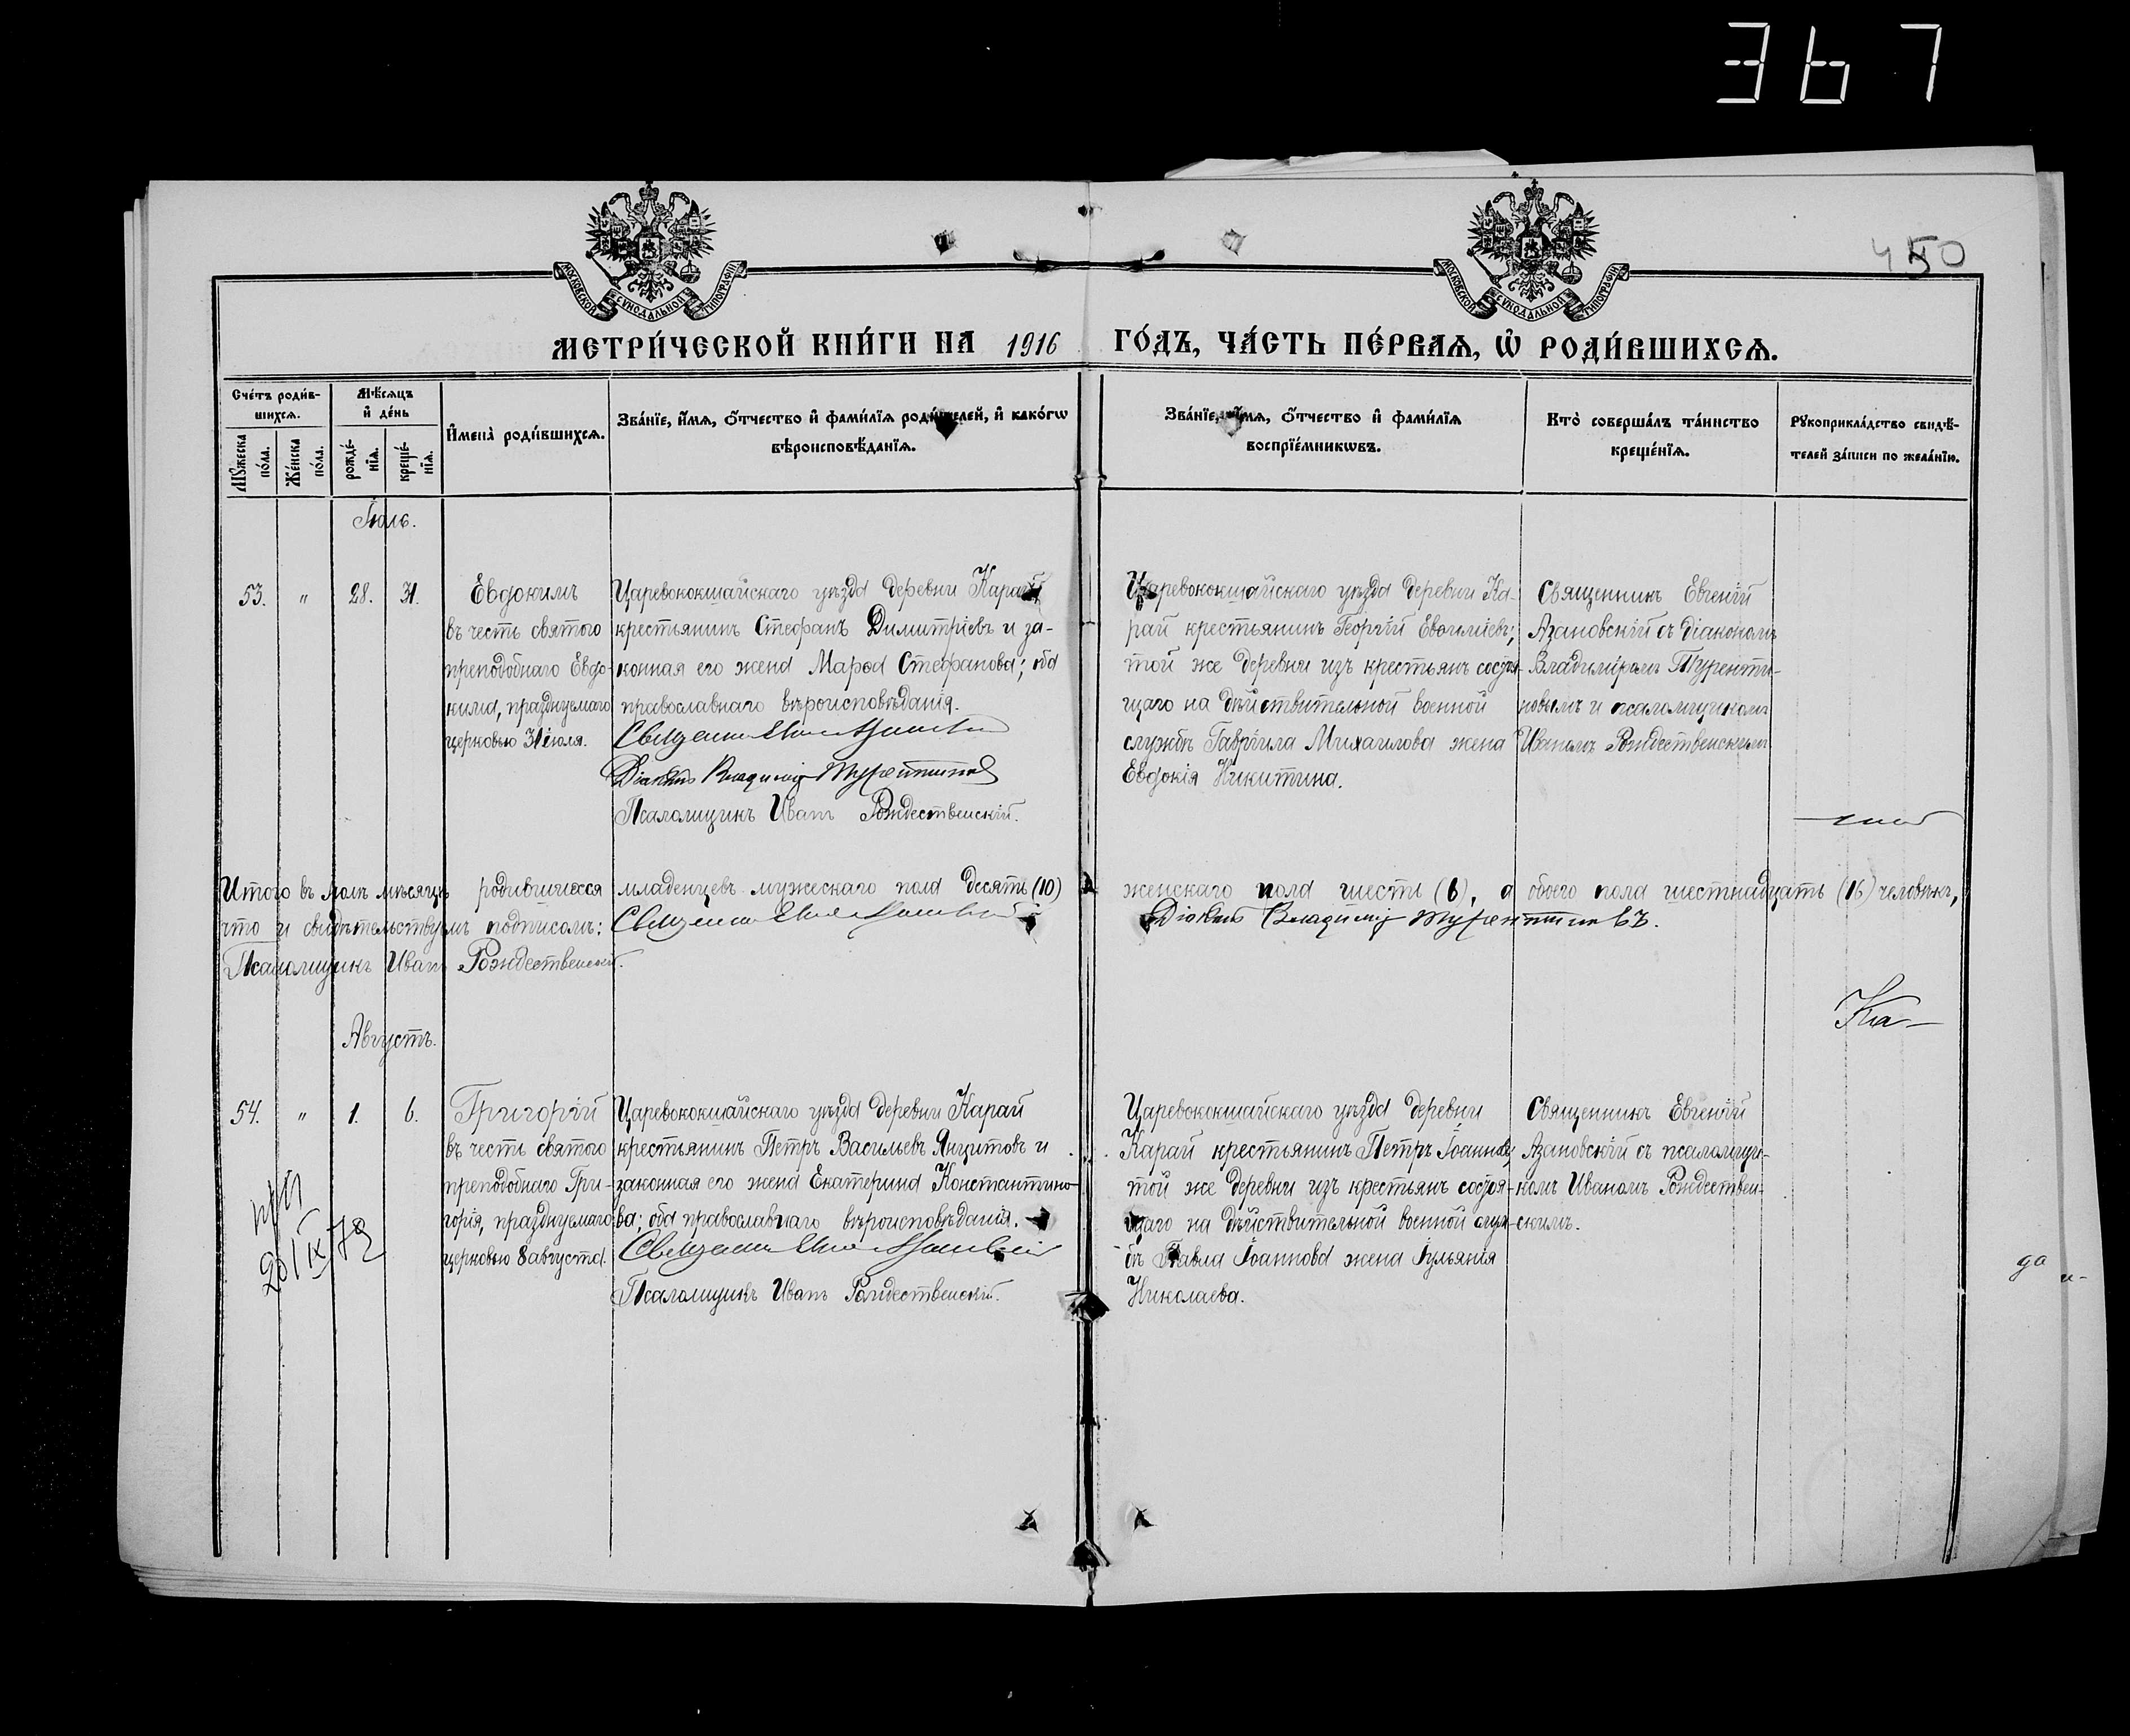 367
450
МОСКОВСКОЙ СѴНОДАЛЬНОЙ ТИПОГРАФІИ
МОСКОВСКОЙ СѴНОДАЛЬНОЙ ТИПОГРАФІИ
МЕТРИ́ЧЕСКОЙ КНИ́ГИ НА 1916 ГО́ДЪ, ЧА́СТЬ ПЕ́РВАѦ, Ѡ РОДИ́ВШИХСѦ.
Сче́тъ роди́в-
шихсѧ.
Мѣ́сѧцъ
и҆ де́нь
Мꙋ́жеска
по́ла.
Же́нска
по́ла.
рожде́-
нїѧ.
креще́-
нїѧ.
И҆мена̀ роди́вшихсѧ.
Зва́нїе, и҆́мѧ, ѻ҆́тчество и҆ фами́лїѧ роди́телей, и҆ како́гѡ
вѣроисповѣ́данїѧ.
Зва́нїе, и҆́мѧ, ѻ҆́тчество и҆ фами́лїѧ
воспрїе́мникѡвъ.
Кто̀ соверша́лъ та́инство
креще́нїѧ.
Рꙋкоприкла́дство свидѣ́-
телей за́писи по жела́нїю.
Іюль.
53. " 28. 31.
Евдокимъ
въ честь святого
преподобнаго Евдо-
кима, празднуемаго
церковью 31 іюля.
Царевококшайскаго уѣзда деревни Карай
крестьянинъ Стефанъ Димитріевъ и за-
конная его жена Марѳа Стефанова; оба
православнаго вѣроисповѣданія.
Діаконъ Владимір Турентинов
Псаломщикъ Иванъ Рождественскій.
Царевококшайскаго уѣзда деревни Ка-
рай крестьянинъ Георгій Евѳиміевъ;
той же деревни изъ крестьянъ состоя-
щаго на дѣйствительной военной
службѣ Гавріила Михаилова жена
Евдокія Никитина.
Священникъ Евгеній
Азановскій съ діакономъ
Владиміромъ Туренти-
новымъ и псаломщикомъ
Иваномъ Рождественскимъ
Итого въ іюлѣ мѣсяцѣ родившихся младенцевъ мужескаго пола десять (10) женскаго пола шесть (6), а обоего пола шестнадцать (16) человѣкъ,
что и свидѣтельствуемъ подписомъ: Діаконъ Владимір Турентиновъ.
Псаломщикъ Иванъ Рождественскій.
Августъ.
54. " 1. 6.
Григорій
въ честь святого
преподобнаго Гри-
горія, празднуемаго
церковью 8 августа.
Царевококшайскаго уѣзда деревни Карай
крестьянинъ Петръ Васильевъ Янцитовъ и
законная его жена Екатерина Константино-
ва; оба православнаго вѣроисповѣданія.
Псаломщикъ Иванъ Рождественскій.
Царевококшайскаго уѣзда деревни
Карай крестьянинъ Петръ Іоанновъ;
той же деревни изъ крестьянъ состоя-
щаго на дѣйствительной военной служ-
бѣ Павла Іоаннова жена Іульянія
Николаева.
Священникъ Евгеній
Азановскій съ псаломщи-
комъ Иваномъ Рождествен-
скимъ.